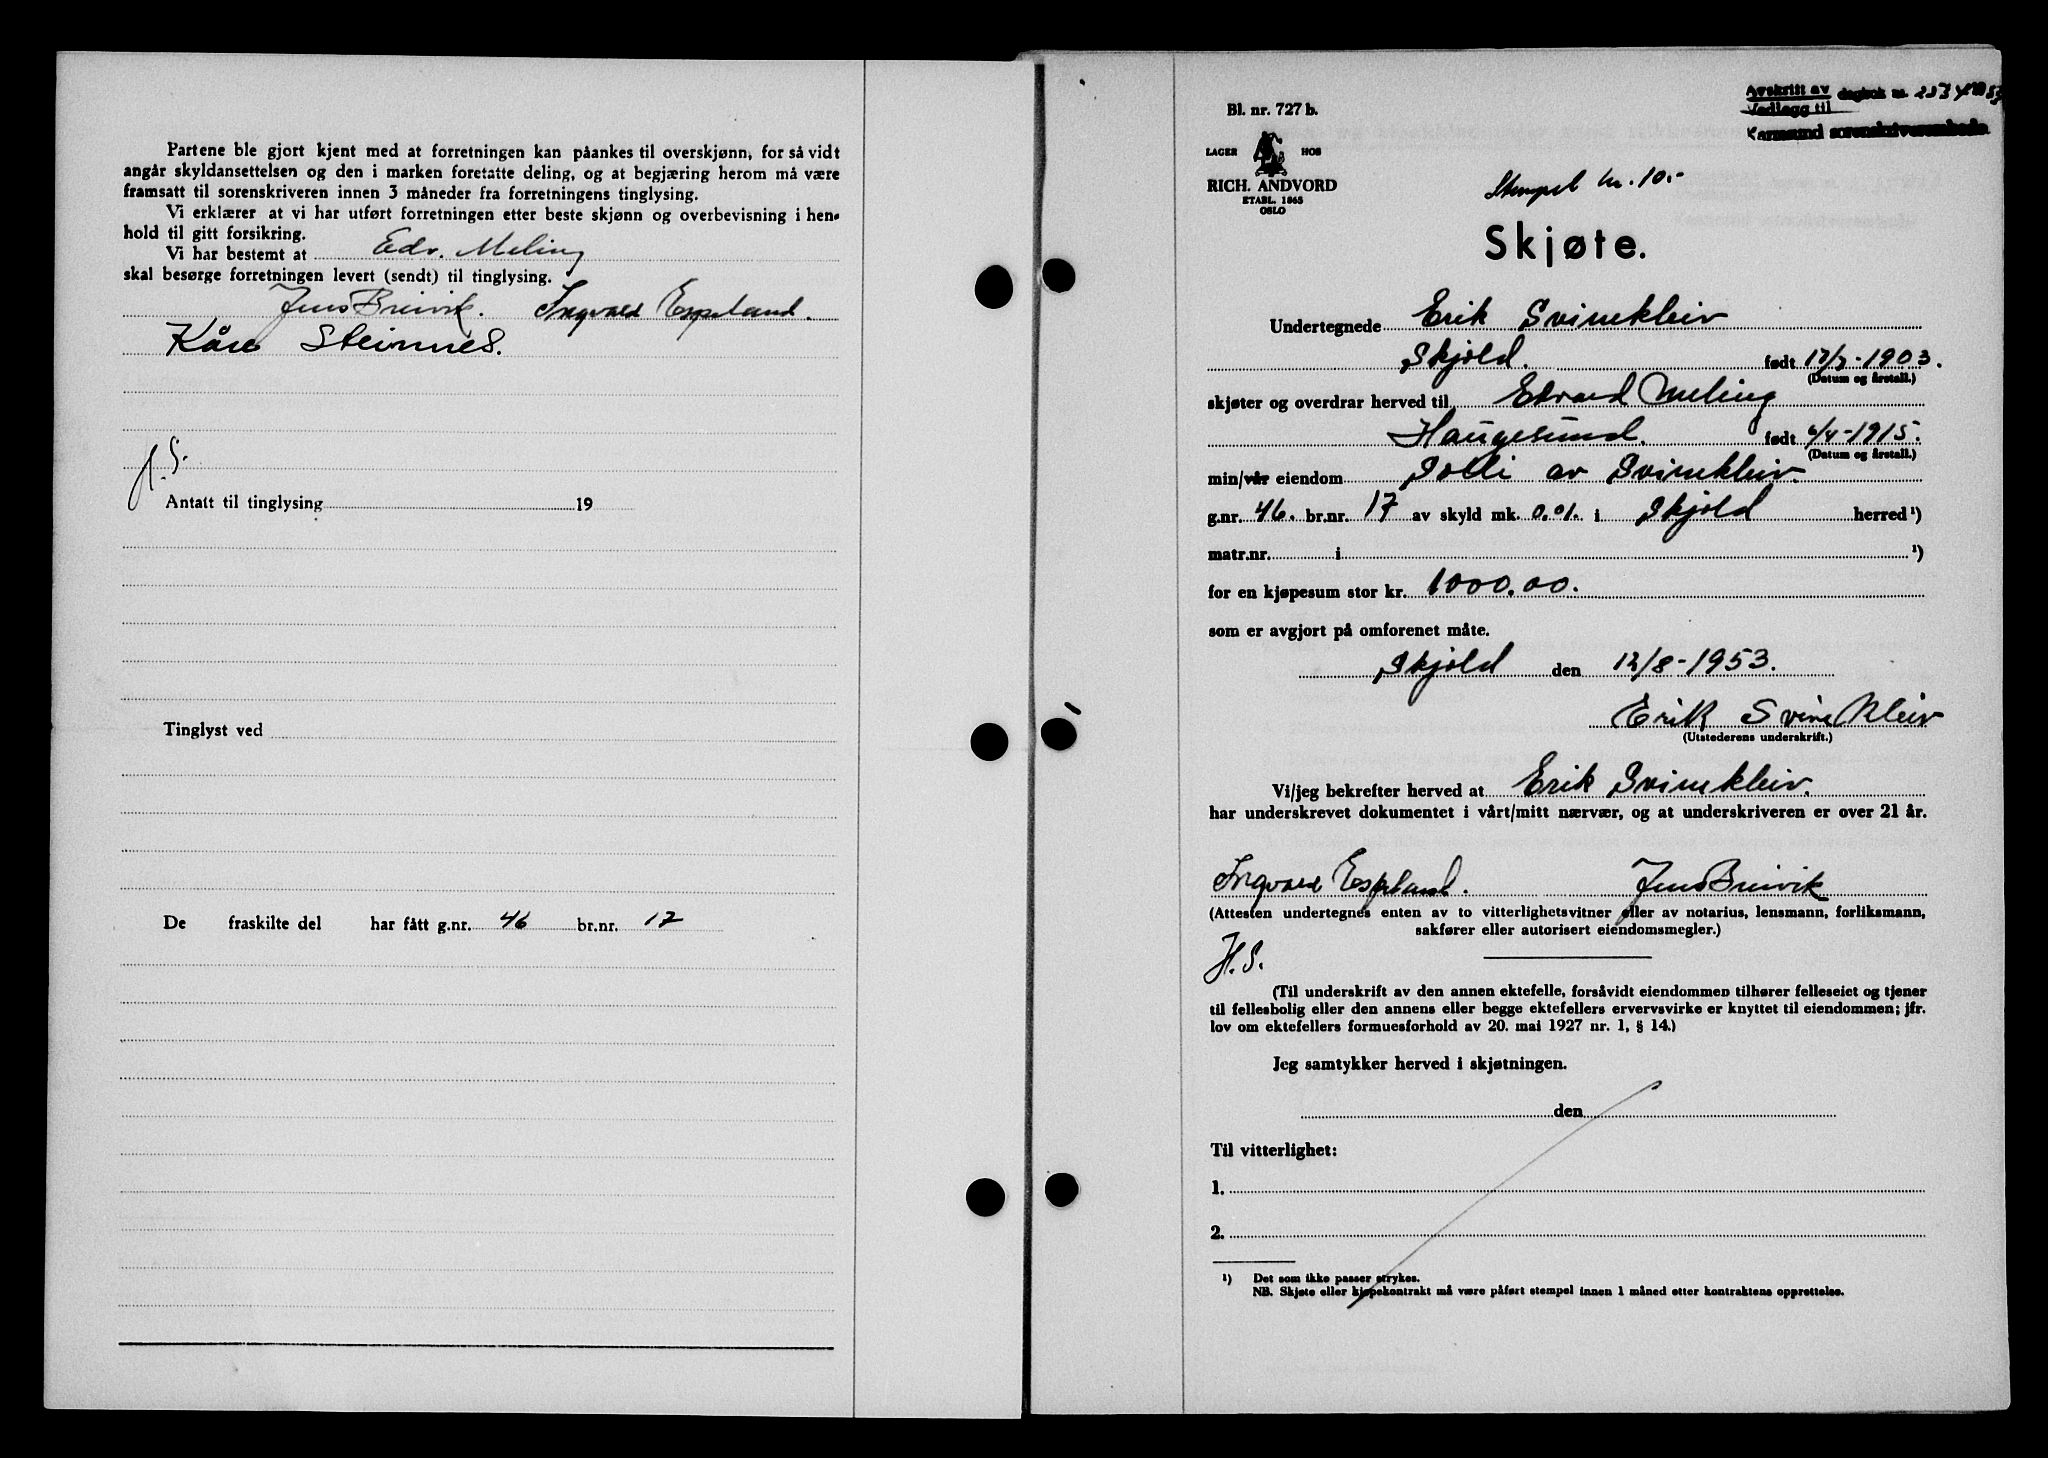 Partene ble gjort kjent med at forretningen kan påankes til overskjønn, for så vidt
angår skyldansettelsen og den i marken foretatte deling, og at begjæring herom må være
framsatt til sorenskriveren innen 3 måneder fra forretningens tinglysing.
Vi erklærer at vi har utført forretningen etter beste skjønn og overbevisning i hen-
hold til gitt forsikring.
Vi har bestemt at Edv. Meling
skal besørge forretningen levert (sendt) til tinglysing.
Jens Breivik. Ingvald Espeland.
Kåre Steinnes.
H.S.
Antatt til tinglysing 19
Tinglyst ved
De fraskilte del har fått g.nr. 46 br.nr. 17
Avskrift av dagbok nr.
Vedlegg til
Karmsund sorenskriverembede
Bl. nr. 727 b.
LAGER HOS
RICH. ANDVORD
ETABL. 1865
OSLO
Stempel kr. 10.-
Skjøte.
Undertegnede Erik Svinekleiv
Skjold. født 1903.
(Datum og årstall.)
skjøter og overdrar herved til Edvard Meling
Haugesund. født 6/4-1915.
(Datum og årstall.)
min/vår eiendom Solli av Svinekleiv.
g.nr. 46. br.nr. 17 av skyld mk. 0.01. i Skjold herred¹)
matr.nr. i ¹)
for en kjøpesum stor kr. 1000.00.
som er avgjort på omforenet måte.
Skjold den 12/8-1953.
Erik Svinekleiv
(Utstederens underskrift.)
Vi/jeg bekrefter herved at Erik Svinekleiv.
har underskrevet dokumentet i vårt/mitt nærvær, og at underskriveren er over 21 år.
Ingvald Espeland. Jens Breivik
(Attesten undertegnes enten av to vitterlighetsvitner eller av notarius, lensmann, forliksmann,
sakfører eller autorisert eiendomsmegler.)
H.S.
(Til underskrift av den annen ektefelle, forsåvidt eiendommen tilhører felleseiet og tjener
til fellesbolig eller den annens eller begge ektefellers ervervsvirke er knyttet til eiendommen; jfr.
lov om ektefellers formuesforhold av 20. mai 1927 nr. 1, § 14.)
Jeg samtykker herved i skjøtningen.
den
Til vitterlighet:
1.
2.
¹) Det som ikke passer strykes.
NB. Skjøte eller kjøpekontrakt må være påført stempel innen 1 måned etter kontraktens opprettelse.